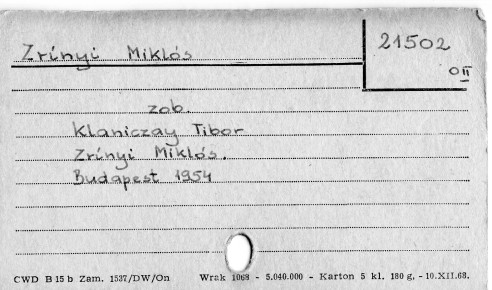 Zrínyi Miklós
21502
OII
zob.
Klaniczay Tibor
Zrínyi Miklós.
Budapest 1954
CWD B 15 b Zam. 1537/DW/On Wrak 1068 - 5.040.000 - Karton 5 kl. 180 g, - 10.XII.68.